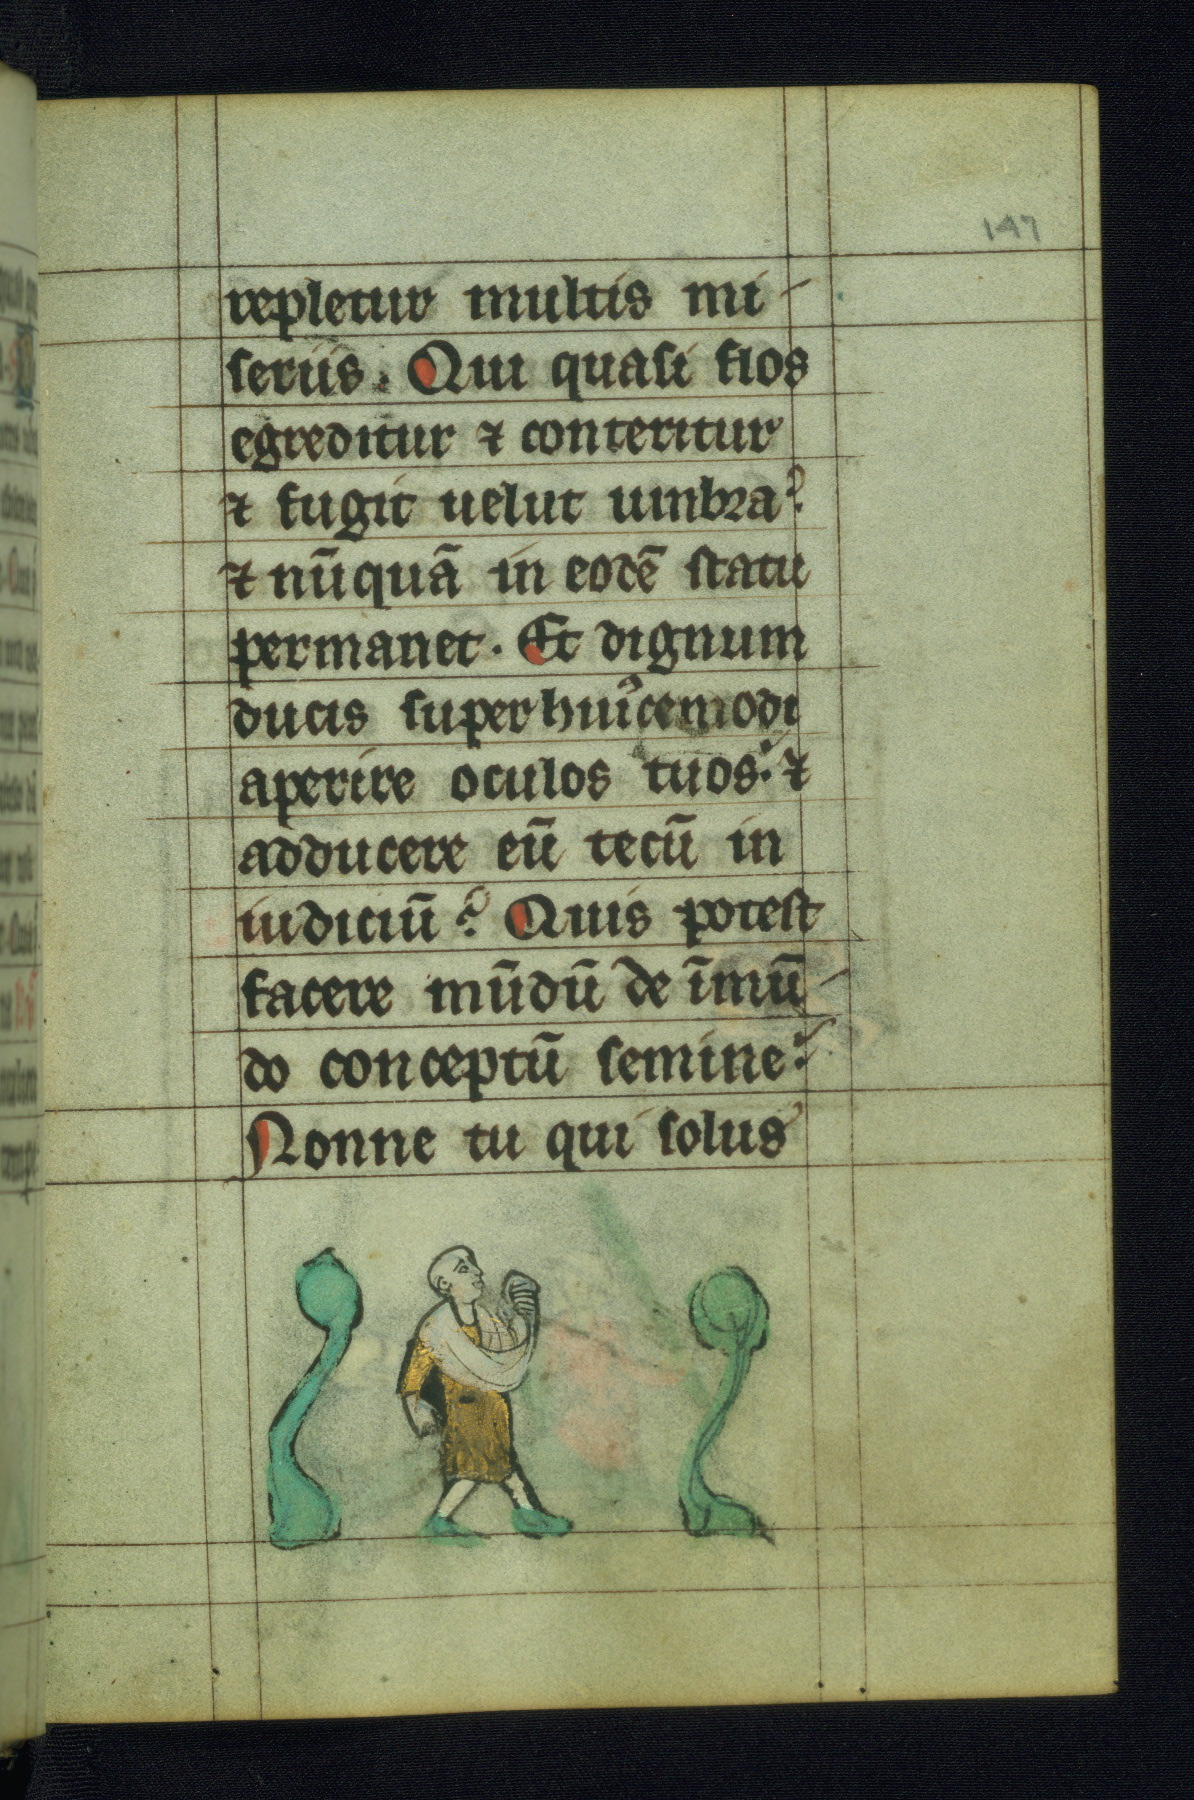 147
repletur multis mi-
seriis. Qui quasi flos
egreditur ⁊ conteritur
⁊ fugit uelut umbra?
⁊ nūquā in eodē statu
permanet. Et dignum
ducis super huiꝰcemodi
aperire oculos tuos: ⁊
adducere eū tecū in
iudiciū? Quis potest
facere mūdū de īmū-
do conceptū semine?
Nonne tu qui solus